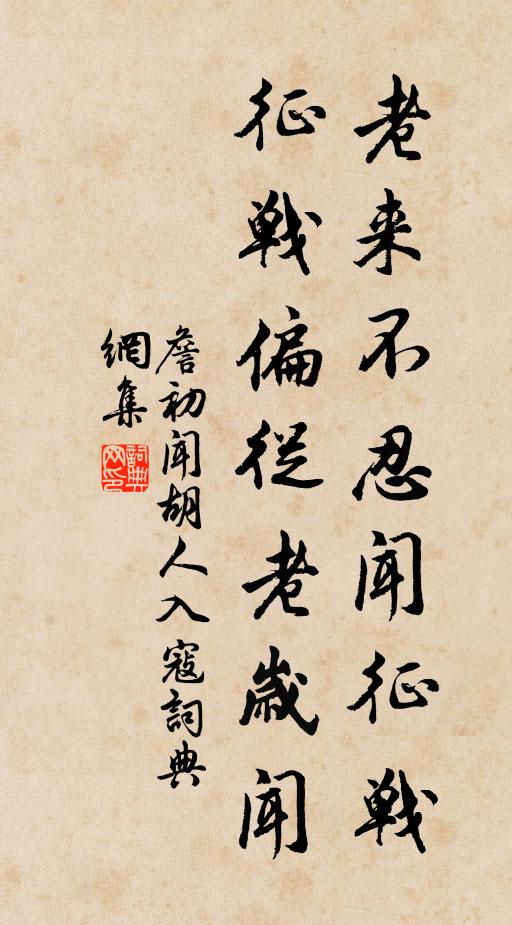 老来不忍闻征戦
征戦偏従老歳闻
詹初闻胡人入寇詞典
網集
詞典网印